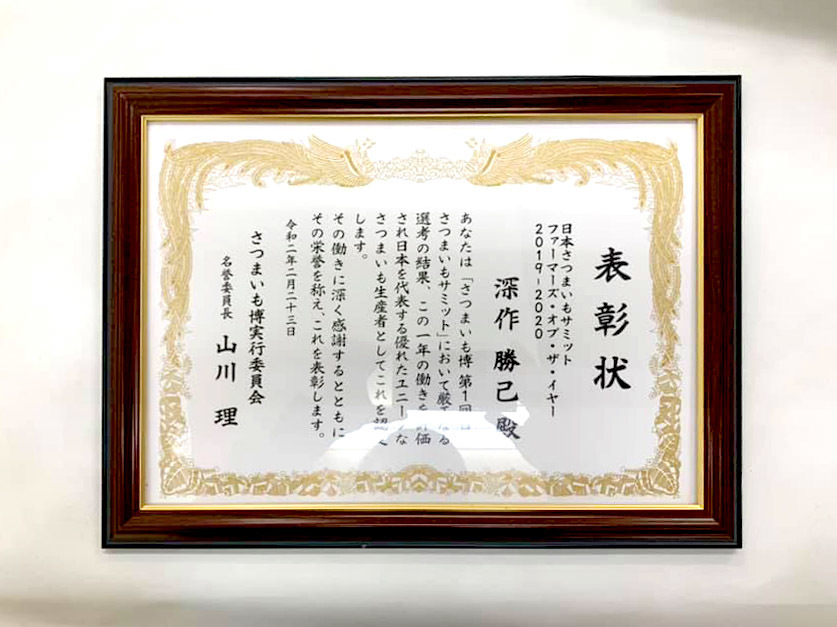 表彰状
日本さつまいもサミット
ファーマーズ・オブ・ザ・イヤー
2019-2020
深作 勝己 殿
あなたは「さつまいも博 第1回日
さつまいもサミット」において厳る
選考の結果、この一年の働きを評価
され日本を代表する優れたユニークな
さつまいも生産者としてこれを認定
します。
その働きに深く感謝するとともに
その栄誉を称え、これを表彰します。
令和二年二月二十三日
さつまいも博実行委員会
名誉委員長 山川 理